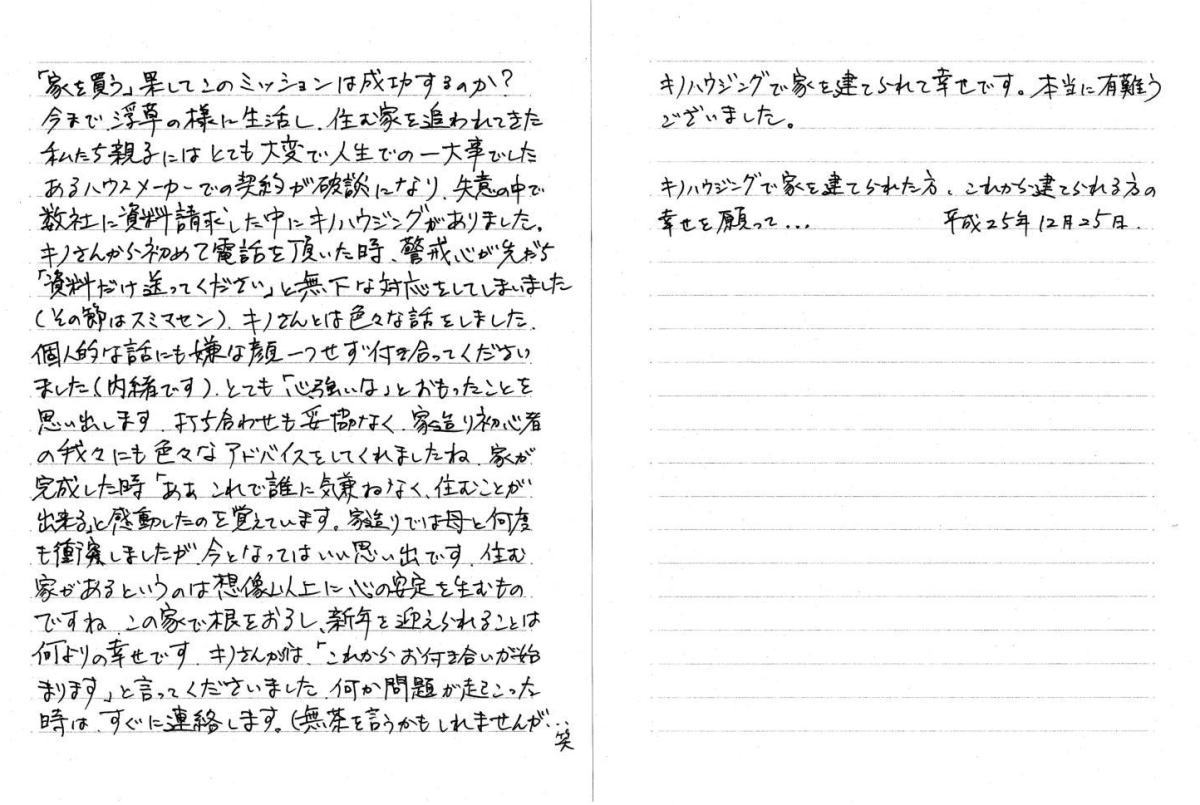 「家を買う」果してこのミッションは成功するのか？
今まで、浮草の様に生活し、住む家を追われてきた
私たち親子にはとても大変で人生での一大事でした
あるハウスメーカーでの契約が破談になり、失意の中で
数社に資料請求した中にキノハウジングがありました。
キノさんから初めて電話を頂いた時、警戒心が先だち
「資料だけ送ってください」と無下な対応をしてしまいました
（その節はスミマセン）、キノさんとは色々な話をしました、
個人的な話にも嫌な顔一つせず付き合ってください
ました（内緒です）、とても「心強いな」とおもったことを
思い出します、打ち合わせも妥協なく、家造り初心者
の我々にも色々なアドバイスをしてくれましたね、家が
完成した時「ああ これで誰に気兼ねなく、住むことが
出来る」と感動したのを覚えています。家造りでは母と何度
も衝突しましたが、今となってはいい思い出です、住む
家があるというのは想像以上に心の安定を生むもの
ですね、この家で根をおろし、新年を迎えられることは
何よりの幸せです、キノさんがは、「これからお付き合いが始
まります」と言ってくださいました、何か問題が起こった
時は、すぐに連絡します。（無茶を言うかもしれませんが…笑
キノハウジングで家を建てられて幸せです。本当に有難う
ございました。
キノハウジングで家を建てられた方、これから建てられる方の
幸せを願って… 平成25年12月25日.